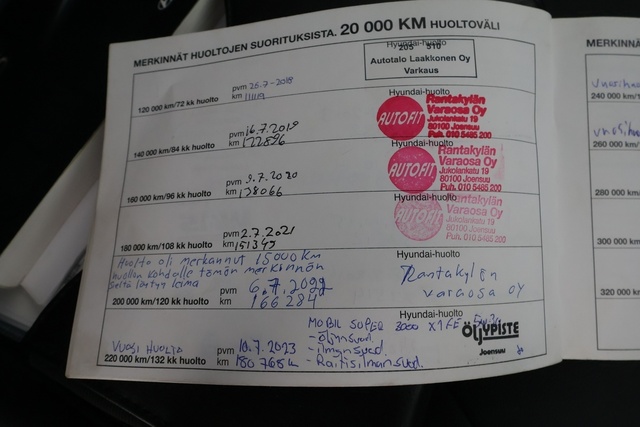 MERKINNÄT HUOLTOJEN SUORITUKSISTA. 20 000 KM HUOLTOVÄLI
Hyundai-huolto
205 510
Autotalo Laakkonen Oy
Varkaus
pvm 26.7-2018
120 000 km/72 kk huolto km
Hyundai-huolto
AUTOFIT
Rantakylän
Varaosa Oy
Jukolankatu 19
80100 Joensuu
Puh. 010 5485 200
pvm 16.7.2019
140 000 km/84 kk huolto km 122896
Hyundai-huolto
AUTOFIT
Rantakylän
Varaosa Oy
Jukolankatu 19
80100 Joensuu
Puh. 010 5485 200
pvm 9.7.2020
160 000 km/96 kk huolto km 138066
Hyundai-huolto
AUTOFIT
Rantakylän
Varaosa Oy
Jukolankatu 19
80100 Joensuu
Puh. 010 5485 200
pvm 2.7.2021
180 000 km/108 kk huolto km 151345
Huolto oli merkannut 15000km
huollon kohdalle tämän merkinnän
siltä löytyy leima
Hyundai-huolto
Rantakylän
varaosa oy
pvm 6.7.2022
200 000 km/120 kk huolto km 166284
Hyundai-huolto
MOBIL SUPER 3000 X1 FE
- öljynsuod.
- ilmansuod.
- Raitisilmansuod.
ÖLJYPISTE
Joensuu
VUOSI HUOLTO pvm 10.7.2023
220 000 km/132 kk huolto km 180768
MERKINNÄ
240 000 km/1
260 000 km
280 000 km
300 000 km
320 000 km